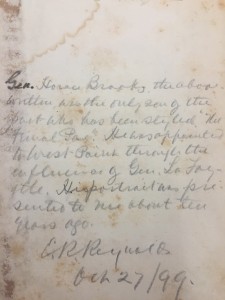 Gen. Horace Brooks, the above
written was the only son of the
Poet who has been styled "the
Final Poet". He was appointed
to West Point through the
influence of Gen. La Fay-
ette. His portrait was pre-
sented to me about ten
years ago.
E. R. Reynolds
Oct 27/99.